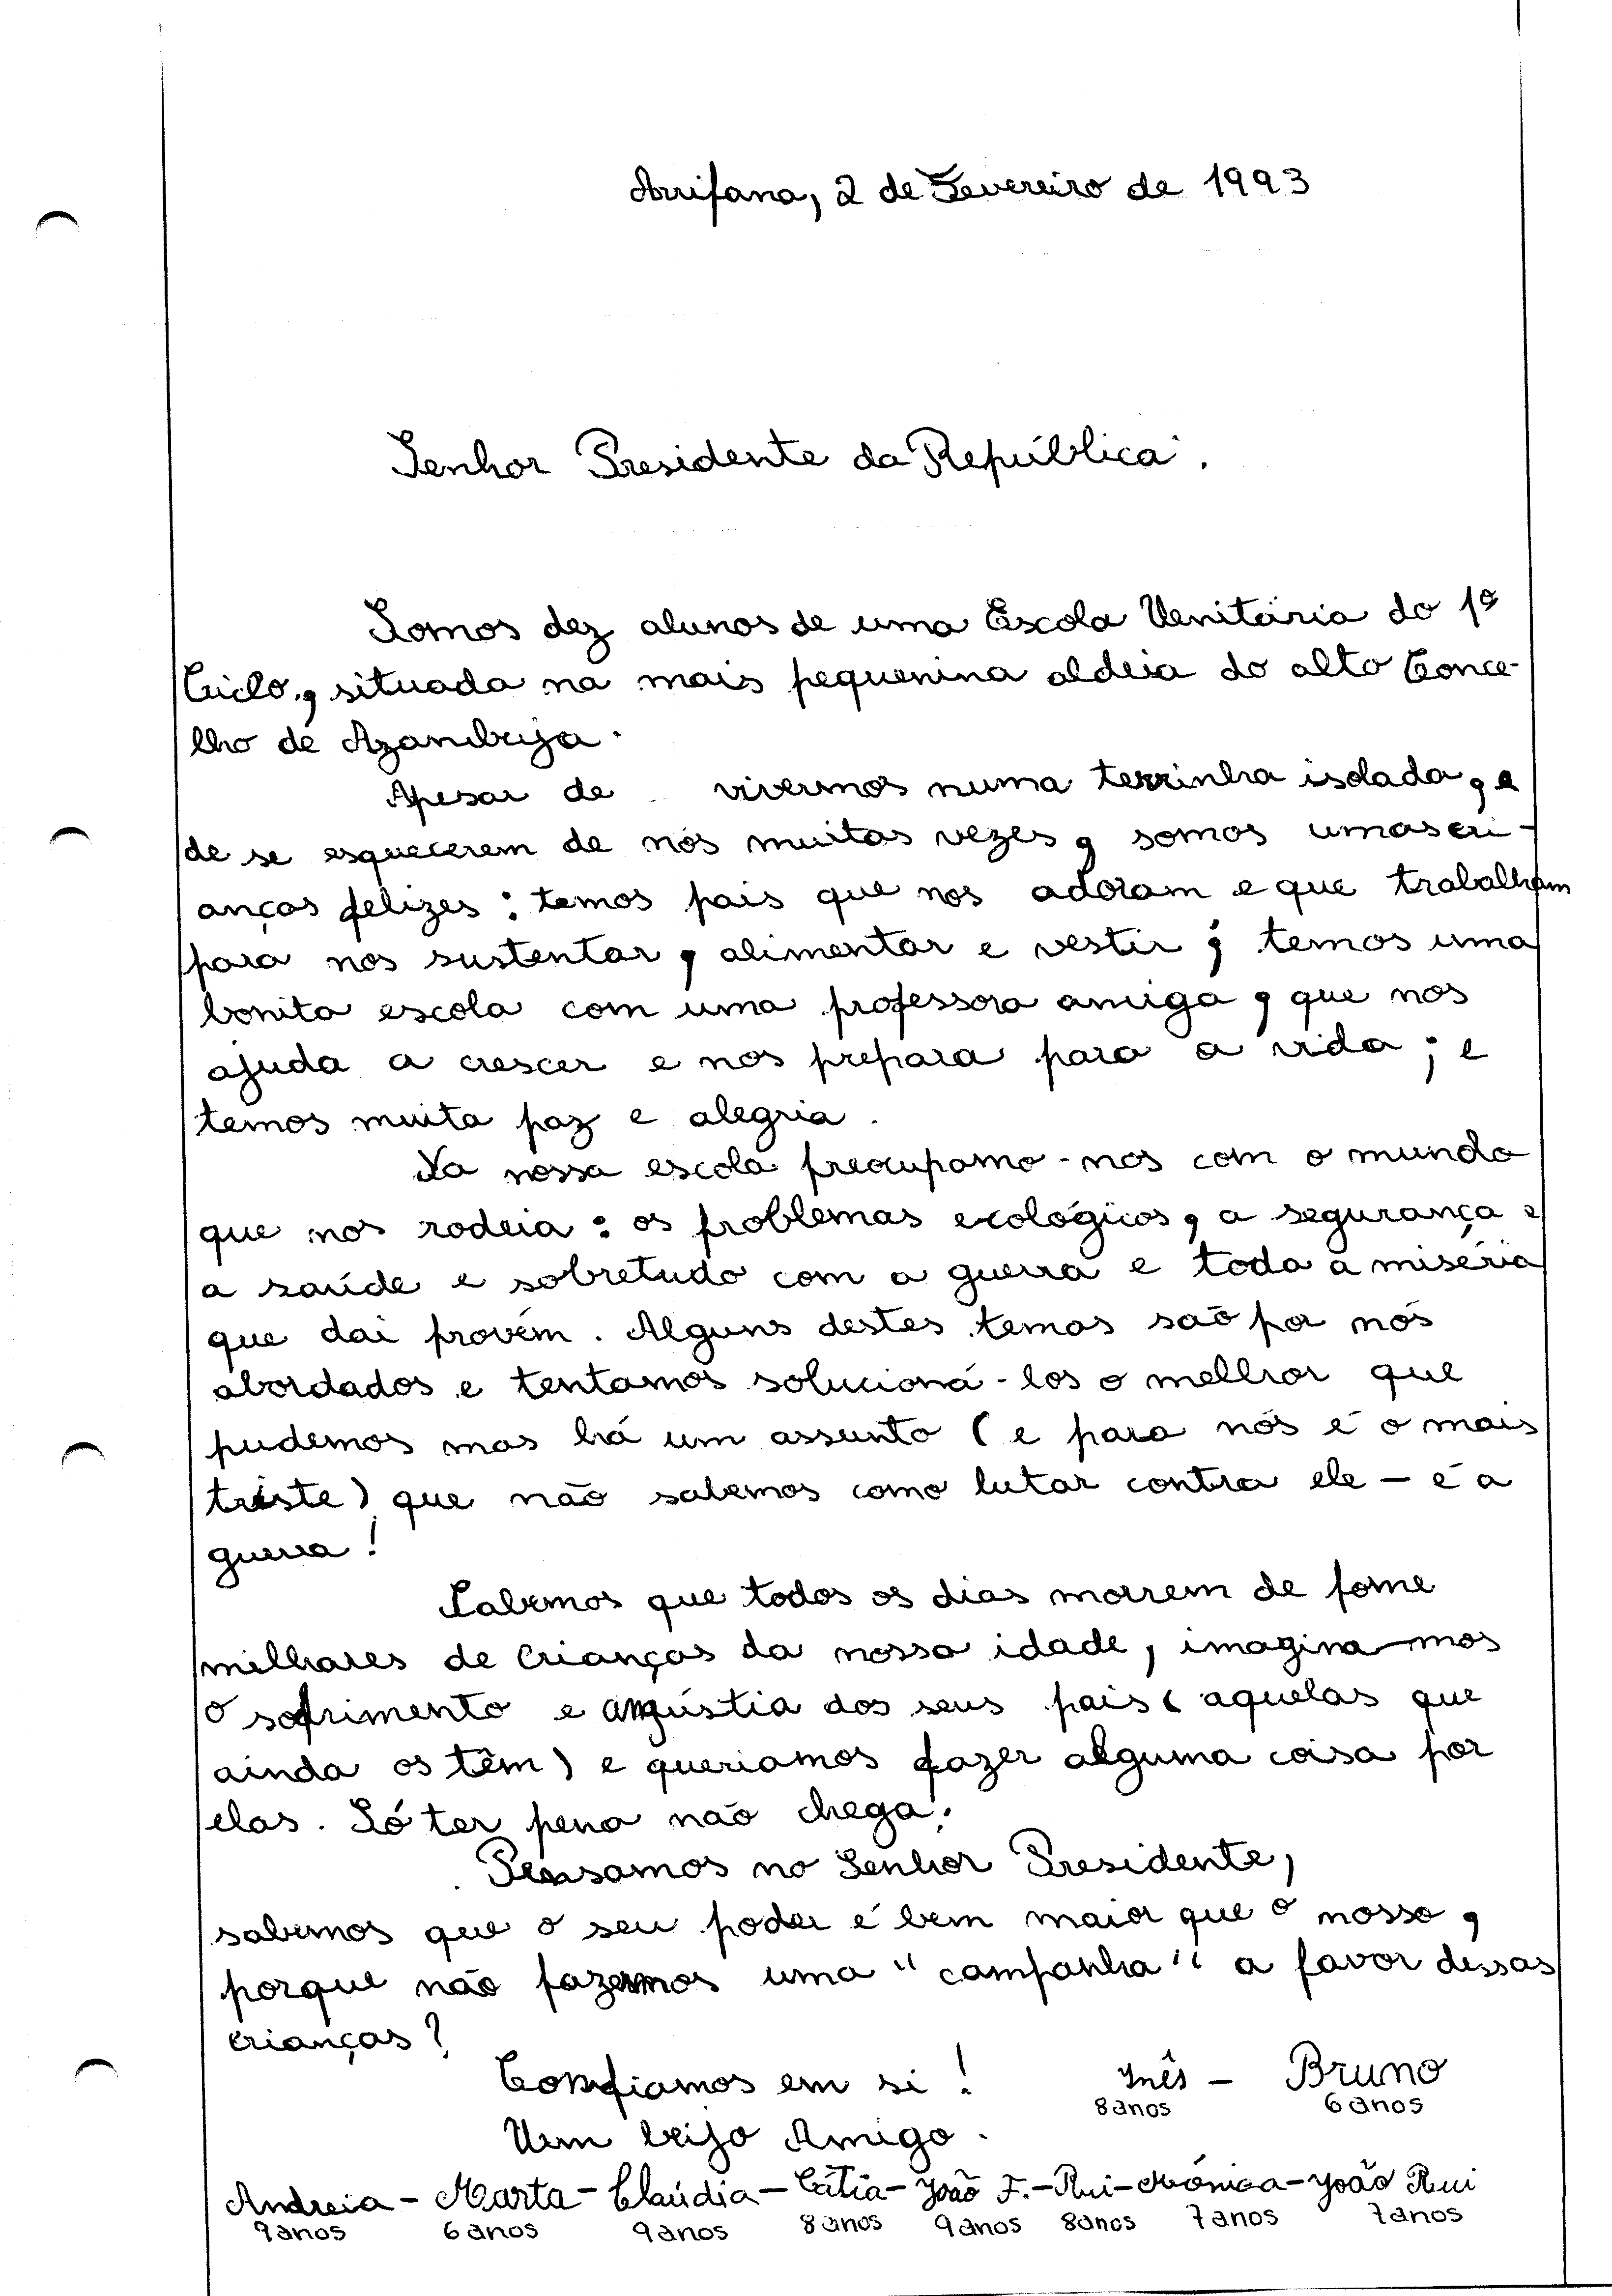 Arrifana, 2 de Fevereiro de 1993
Senhor Presidente da República:
Somos dez alunos de uma Escola Unitária do 1º
Ciclo, situada na mais pequenina aldeia do alto Conce-
lho de Azambuja.
Apesar de vivermos numa terrinha isolada, e
de se esquecerem de nós muitas vezes, somos umas cri-
anças felizes: temos pais que nos adoram e que trabalham
para nos sustentar, alimentar e vestir; temos uma
bonita escola com uma professora amiga, que nos
ajuda a crescer e nos prepara para a vida; e
temos muita paz e alegria.
Na nossa escola preocupamo-nos com o mundo
que nos rodeia: os problemas ecológicos, a segurança e
a saúde e sobretudo com a guerra e toda a miséria
que daí provém. Alguns destes temas são por nós
abordados e tentamos solucioná-los o melhor que
pudemos mas há um assunto (e para nós é o mais
triste) que não sabemos como lutar contra ele - é a
guerra!
Sabemos que todos os dias morrem de fome
milhares de crianças da nossa idade, imagina-mos
o sofrimento e angústia dos seus pais (aquelas que
ainda os têm) e queriamos fazer alguma coisa por
elas. Só ter pena não chega!
Pensamos no Senhor Presidente,
sabemos que o seu poder é bem maior que o nosso,
porque não fazermos uma "campanha" a favor dessas
crianças?
Confiamos em si!
Inês - Bruno
8 anos 6 anos
Um beijo Amigo.
Andreia - Marta - Claúdia - Cátia - João F. - Rui - Mónica - João Rui
9 anos 6 anos 9 anos 8 anos 9 anos 8 anos 7 anos 7 anos